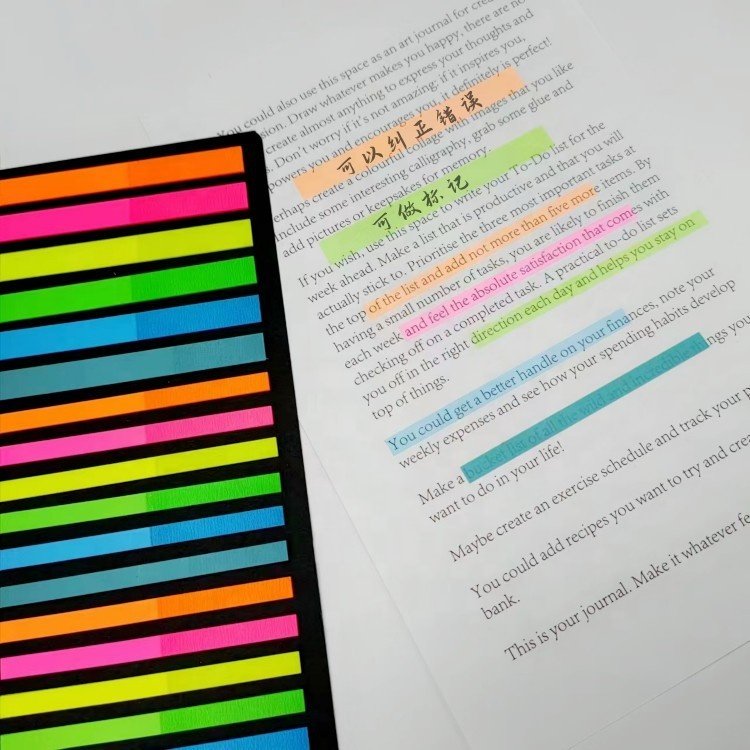 You could also use this space as an art journal for crea
sion. Draw whatever makes you happy, there are no
create almost anything to express your thoughts and
. Don't worry if it's not amazing: if it inspires you,
powers you and encourages you, it definitely is perfect!
erhaps create a colourful collage with images that you like
include some interesting calligraphy, grab some glue and
add pictures or keepsakes for memory.
可以纠正错误
可做标记
If you wish, use this space to write your To-Do list for the
week ahead. Make a list that is productive and that you will
actually stick to. Prioritise the three most important tasks at
the top of the list and add not more than five more items. By
having a small number of tasks, you are likely to finish them
each week and feel the absolute satisfaction that comes with
checking off on a completed task. A practical to-do list sets
you off in the right direction each day and helps you stay on
top of things.
You could get a better handle on your finances, note your
weekly expenses and see how your spending habits develop
Make a bucket list of all the wild and incredible things you
want to do in your life!
Maybe create an exercise schedule and track your p
You could add recipes you want to try and crea
bank.
This is your journal. Make it whatever fe